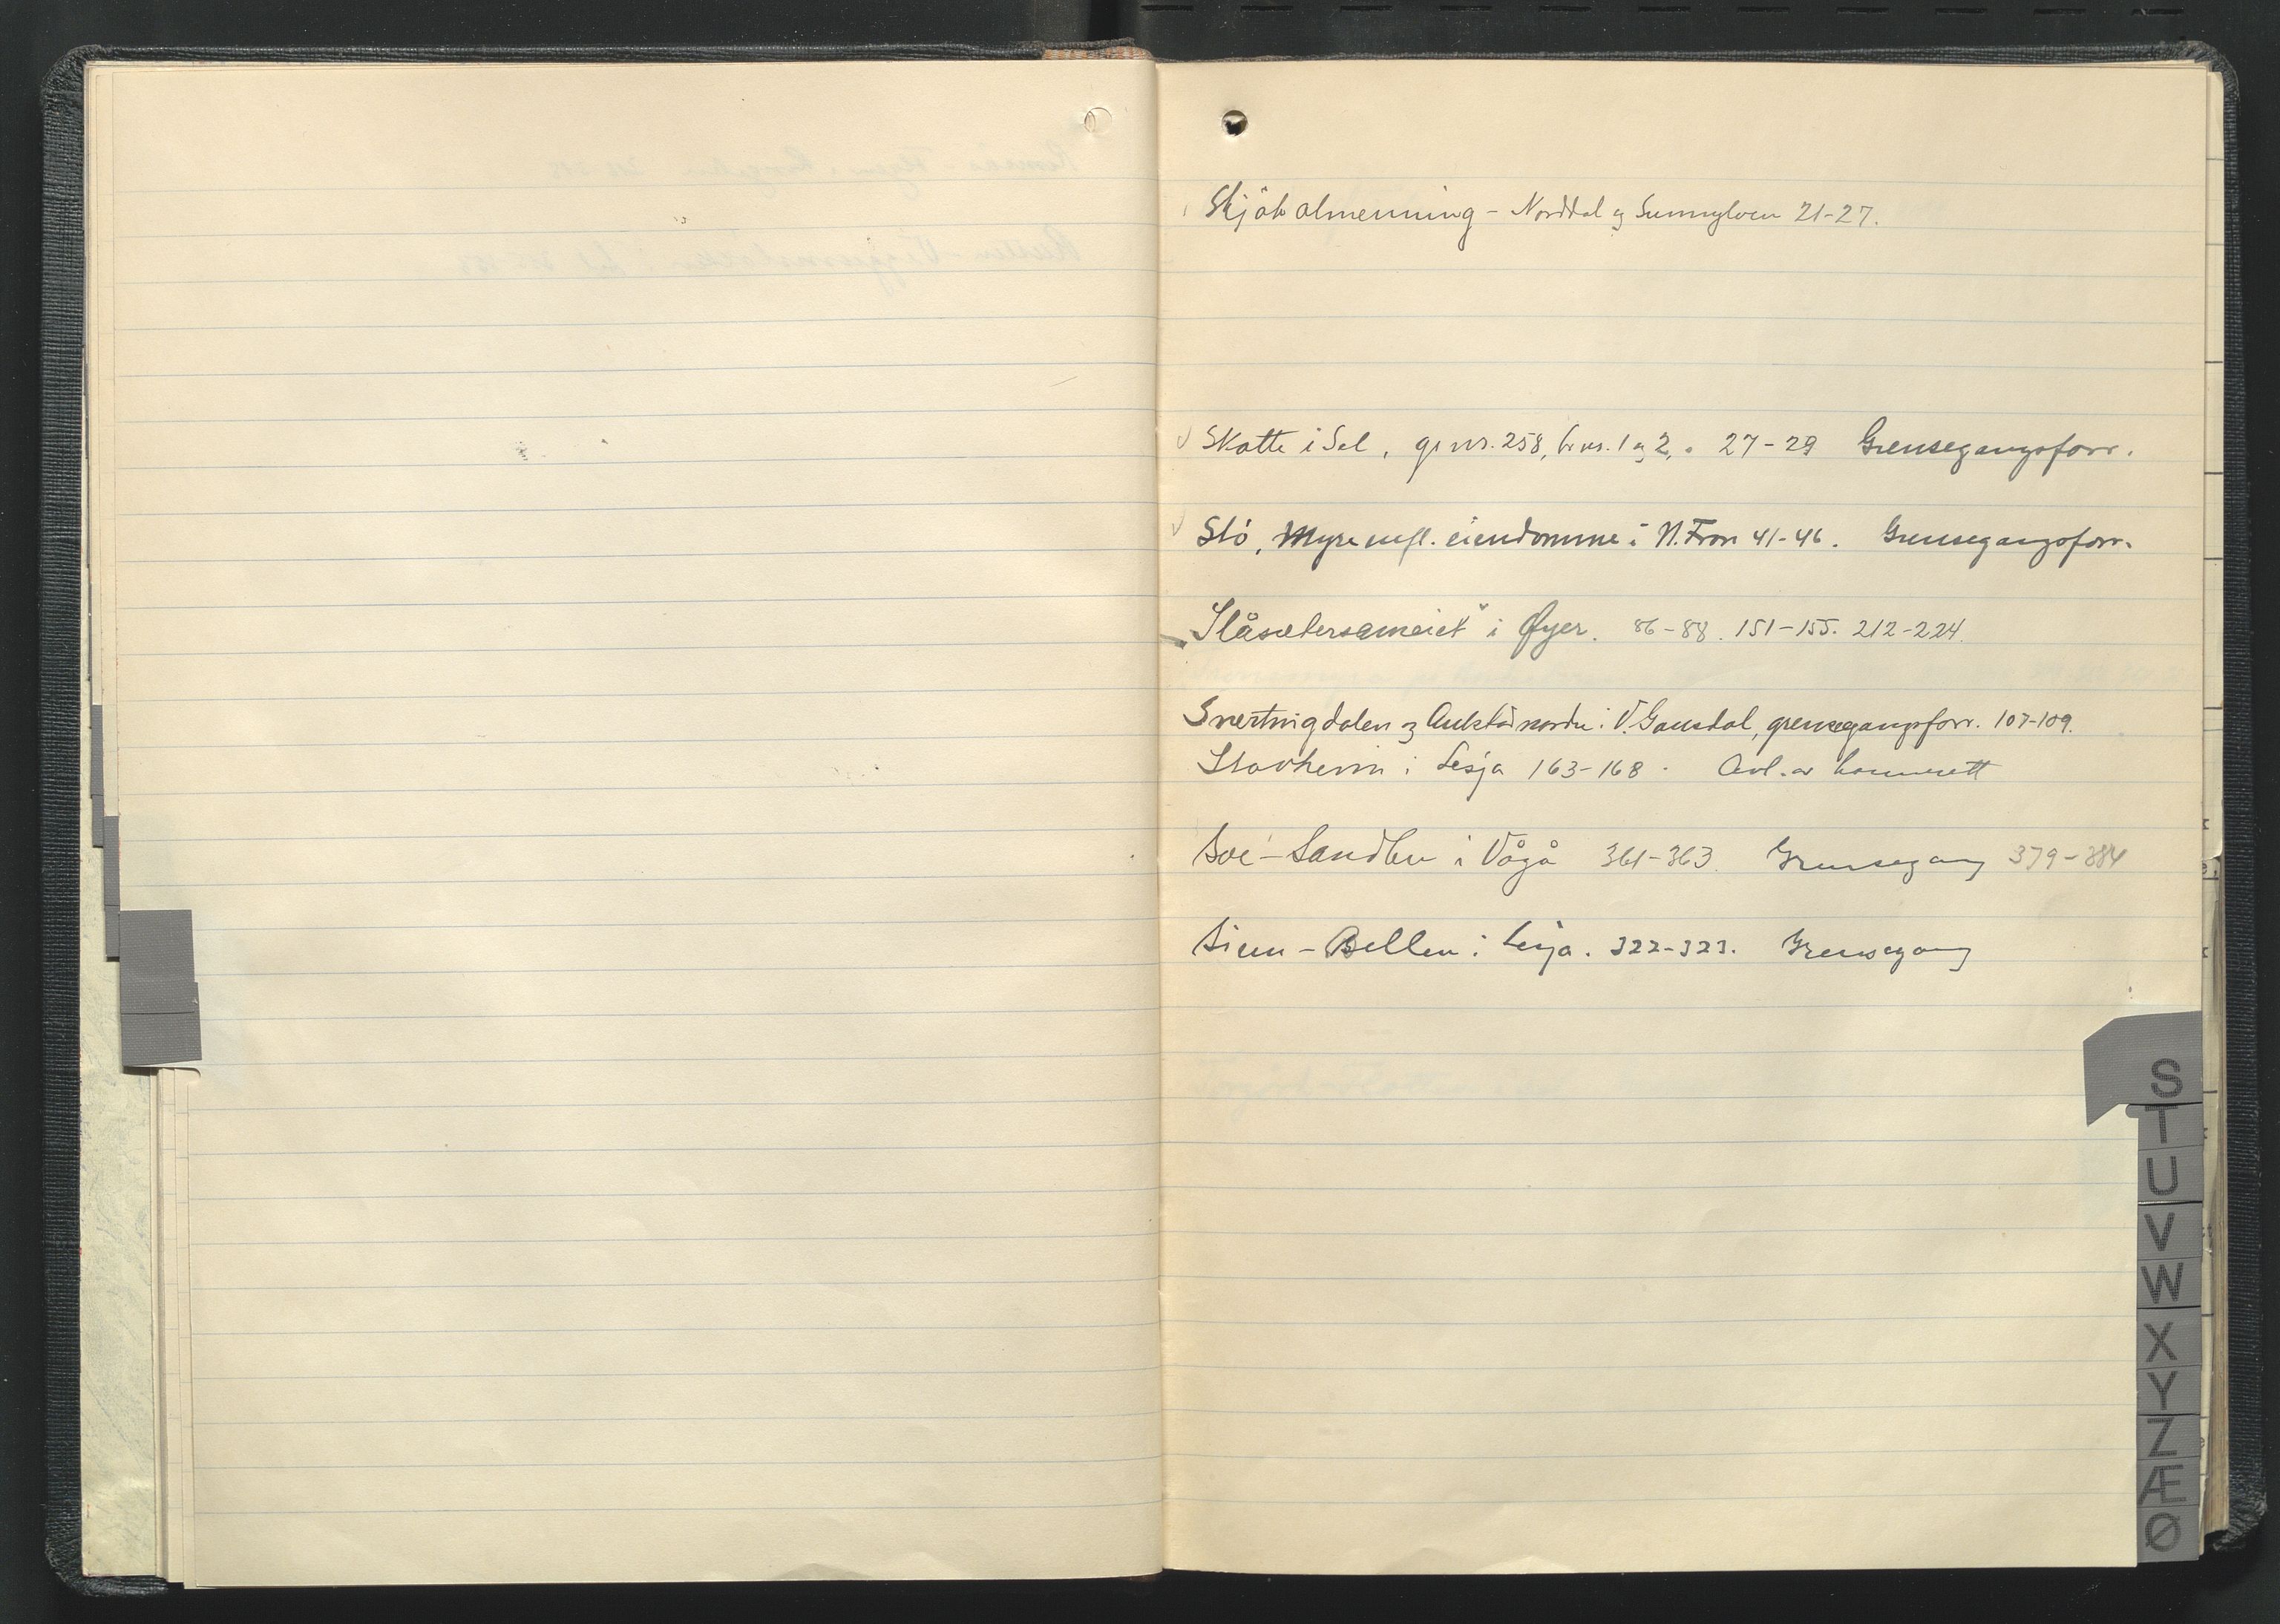 Skjåk almenning - Norddal og Sunnylven 21-27.
Skotte i Sel, gr.nr. 258, br.nr. 1 og 2, . 27-29 Grensegangsforr.
Slo, Myre mfl. eiendomme i N. Fron 41-46. Grensegangsforr.
"Slåsætersameiet" i Øyer. 86-88. 151-155. 212-224.
Svertingdalen og nordre i V. Gausdal, grensegangsforr. 107-109.
Stavheim i Lesja 163-168. Avl. av
Soe - Sandbu i Vågå 361-363. Grensegang 379-384
- Bellen i Lesja. 322-323. Grensegang
S
T
U
V
W
X
Y
Z
Æ
Ø